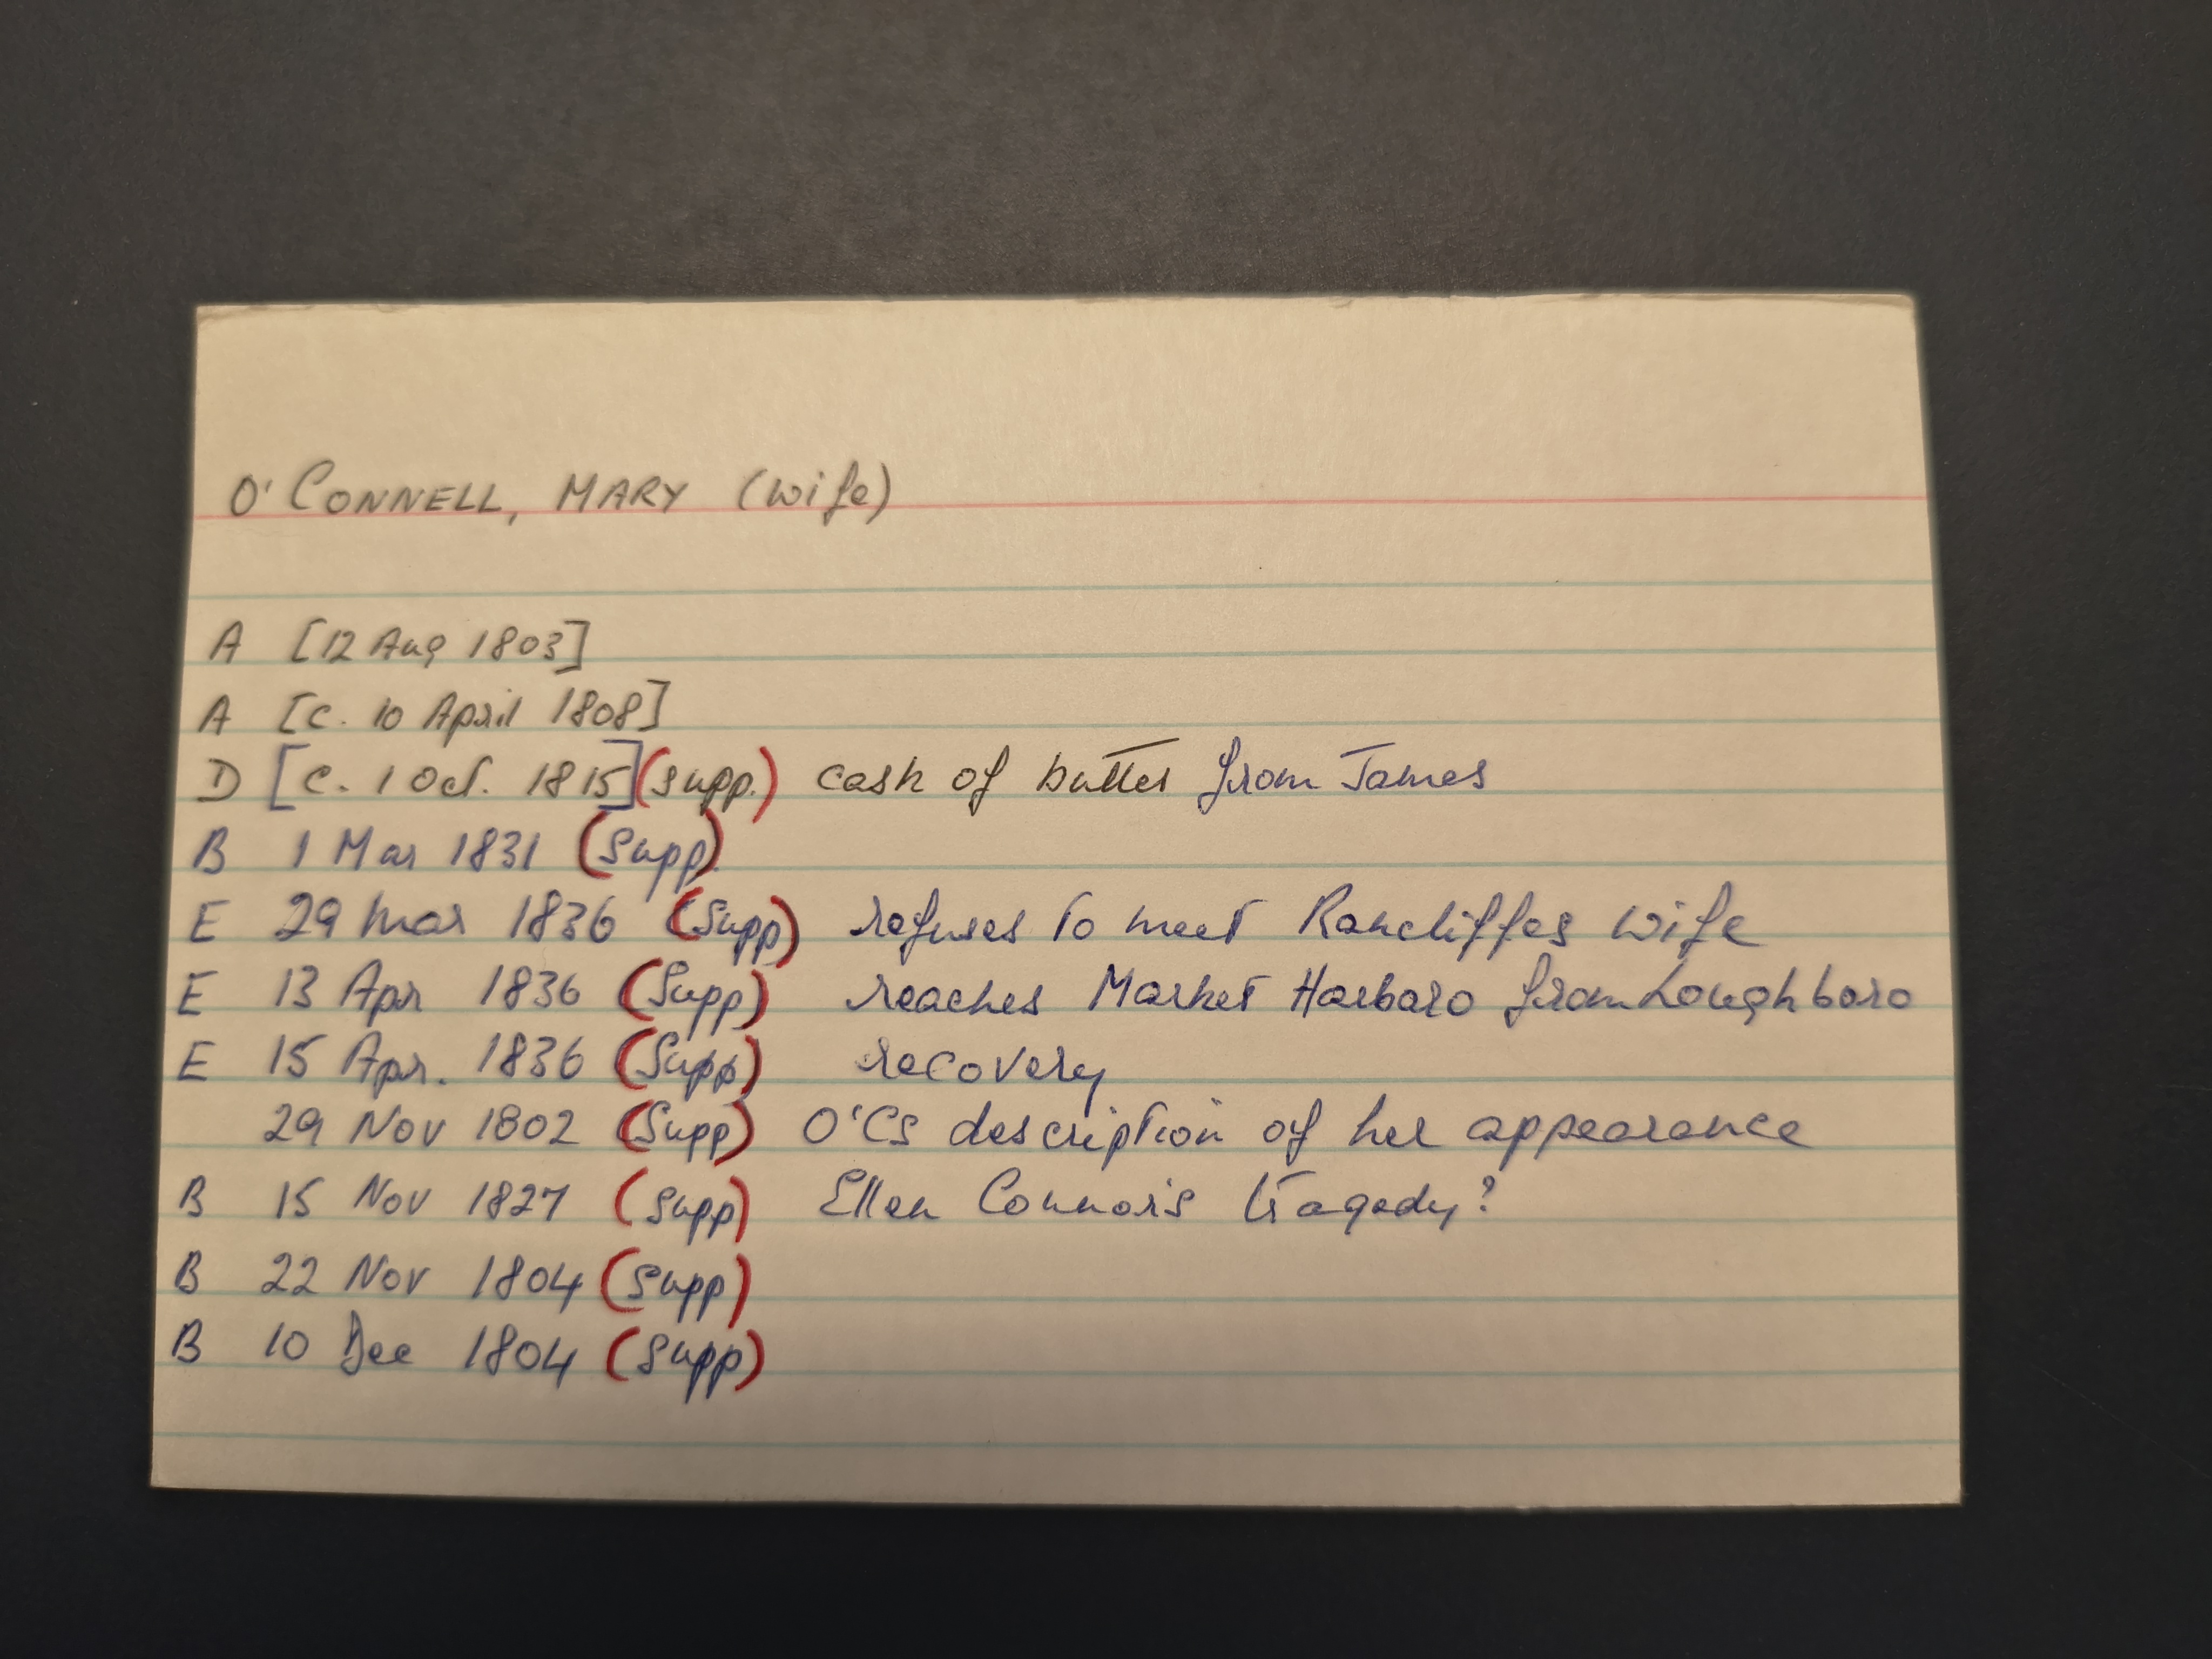 O'CONNELL, MARY (wife)
A [12 Aug 1803]
A [c. 10 April 1808]
D [c. 1 Oct. 1815] (supp.) cask of butter from James
B 1 Mar 1831 (Supp)
E 29 Mar 1836 (Supp) refuses to meet Rancliffes wife
E 13 Apr 1836 (Supp) reaches Market Harboro from Loughboro
E 15 Apr. 1836 (Supp) recovery
29 Nov 1802 (Supp) O'Cs description of her appearance
B 15 Nov 1827 (Supp) Ellen Connors tragedy?
B 22 Nov 1804 (Supp)
B 10 Dec 1804 (Supp)